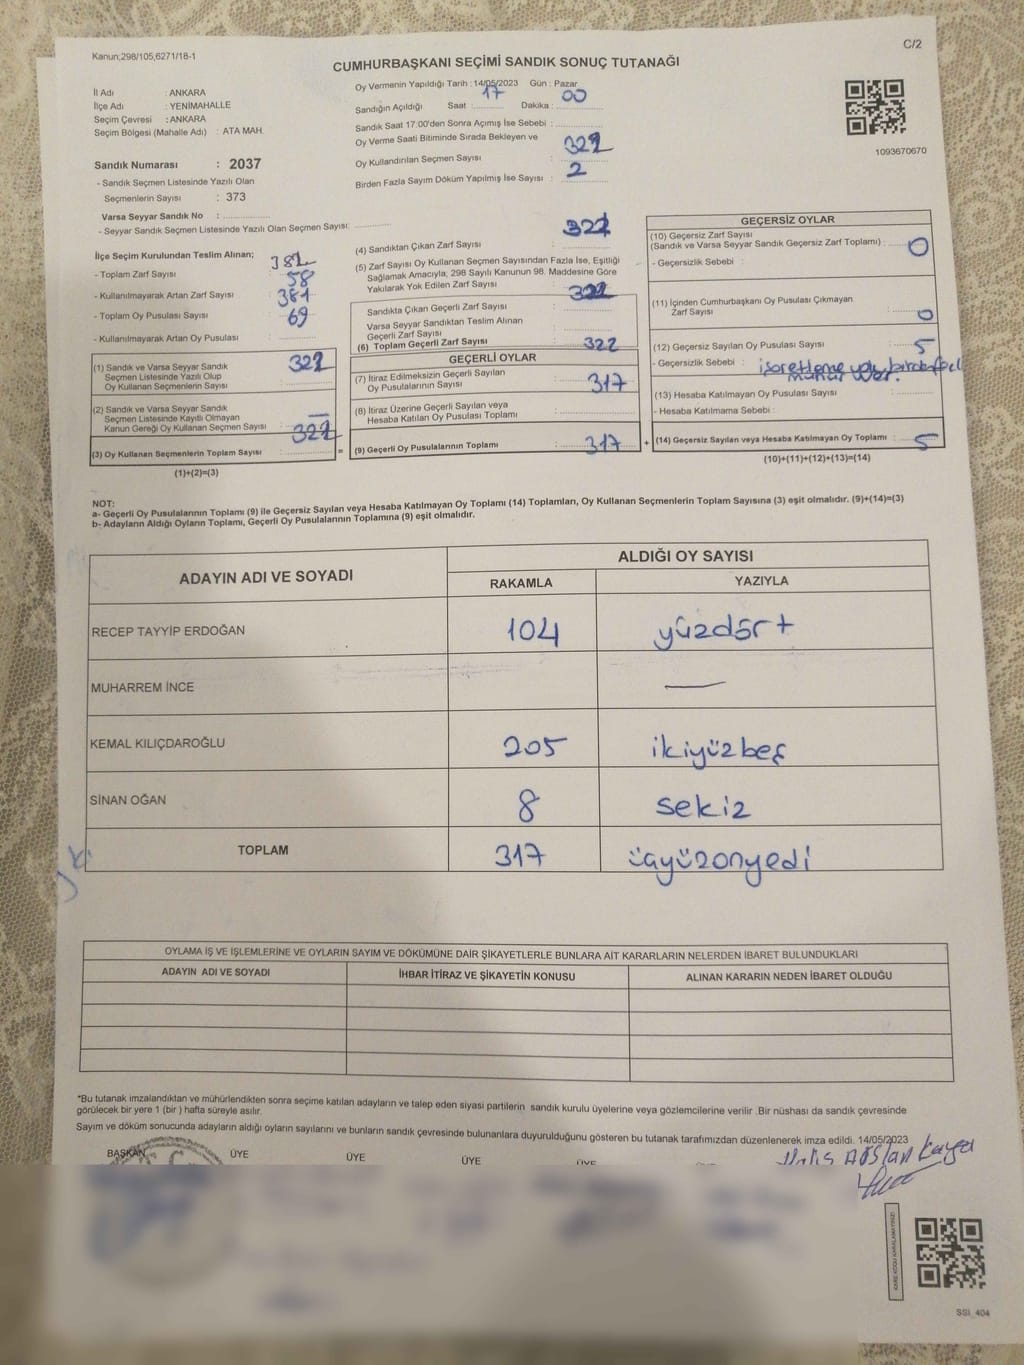 Kanun;298/105,6271/18-1
C/2
CUMHURBAŞKANI SEÇİMİ SANDIK SONUÇ TUTANAĞI
İl Adı : ANKARA
İlçe Adı : YENİMAHALLE
Seçim Çevresi : ANKARA
Seçim Bölgesi (Mahalle Adı) : ATA MAH.
Sandık Numarası : 2037
- Sandık Seçmen Listesinde Yazılı Olan
Seçmenlerin Sayısı : 373
Varsa Seyyar Sandık No :
- Seyyar Sandık Seçmen Listesinde Yazılı Olan Seçmen Sayısı:
Oy Vermenin Yapıldığı Tarih : 14/05/2023 Gün : Pazar
Sandığın Açıldığı Saat : 17 Dakika : 00
Sandık Saat 17:00'den Sonra Açımış İse Sebebi :
Oy Verme Saati Bitiminde Sırada Bekleyen ve
Oy Kullandırılan Seçmen Sayısı : 322
Birden Fazla Sayım Döküm Yapılmış İse Sayısı : 2
1093670670
İlçe Seçim Kurulundan Teslim Alınan;
- Toplam Zarf Sayısı : 382
- Kullanılmayarak Artan Zarf Sayısı : 58
- Toplam Oy Pusulası Sayısı : 381
- Kullanılmayarak Artan Oy Pusulası : 69
(1) Sandık ve Varsa Seyyar Sandık
Seçmen Listesinde Yazılı Olup
Oy Kullanan Seçmenlerin Sayısı : 322
(2) Sandık ve Varsa Seyyar Sandık
Seçmen Listesinde Kayıtlı Olmayan
Kanun Gereği Oy Kullanan Seçmen Sayısı : —
(3) Oy Kullanan Seçmenlerin Toplam Sayısı : 322
(1)+(2)=(3)
(4) Sandıktan Çıkan Zarf Sayısı : 322
(5) Zarf Sayısı Oy Kullanan Seçmen Sayısından Fazla İse, Eşitliği
Sağlamak Amacıyla, 298 Sayılı Kanunun 98. Maddesine Göre
Yakılarak Yok Edilen Zarf Sayısı :
Sandıkta Çıkan Geçerli Zarf Sayısı :
Varsa Seyyar Sandıktan Teslim Alınan
Geçerli Zarf Sayısı :
(6) Toplam Geçerli Zarf Sayısı : 322
GEÇERLİ OYLAR
(7) İtiraz Edilmeksizin Geçerli Sayılan
Oy Pusulalarının Sayısı : 317
(8) İtiraz Üzerine Geçerli Sayılan veya
Hesaba Katılan Oy Pusulası Toplamı :
(9) Geçerli Oy Pusulalarının Toplamı : 317
GEÇERSİZ OYLAR
(10) Geçersiz Zarf Sayısı
(Sandık ve Varsa Seyyar Sandık Geçersiz Zarf Toplamı) : 0
- Geçersizlik Sebebi :
(11) İçinden Cumhurbaşkanı Oy Pusulası Çıkmayan
Zarf Sayısı : 0
(12) Geçersiz Sayılan Oy Pusulası Sayısı : 5
- Geçersizlik Sebebi : işaretleme
mühür var.
(13) Hesaba Katılmayan Oy Pusulası Sayısı :
- Hesaba Katılmama Sebebi :
+ (14) Geçersiz Sayılan veya Hesaba Katılmayan Oy Toplamı : 5
(10)+(11)+(12)+(13)=(14)
NOT:
a- Geçerli Oy Pusulalarının Toplamı (9) ile Geçersiz Sayılan veya Hesaba Katılmayan Oy Toplamı (14) Toplamları, Oy Kullanan Seçmenlerin Toplam Sayısına (3) eşit olmalıdır. (9)+(14)=(3)
b- Adayların Aldığı Oyların Toplamı, Geçerli Oy Pusulalarının Toplamına (9) eşit olmalıdır.
ADAYIN ADI VE SOYADI
ALDIĞI OY SAYISI
RAKAMLA YAZIYLA
RECEP TAYYİP ERDOĞAN 104 yüzdört
MUHARREM İNCE —
KEMAL KILIÇDAROĞLU 205 ikiyüzbeş
SİNAN OĞAN 8 sekiz
TOPLAM 317 üçyüzonyedi
OYLAMA İŞ VE İŞLEMLERİNE VE OYLARIN SAYIM VE DÖKÜMÜNE DAİR ŞİKAYETLERLE BUNLARA AİT KARARLARIN NELERDEN İBARET BULUNDUKLARI
ADAYIN ADI VE SOYADI İHBAR İTİRAZ VE ŞİKAYETİN KONUSU ALINAN KARARIN NEDEN İBARET OLDUĞU
*Bu tutanak imzalandıktan ve mühürlendikten sonra seçime katılan adayların ve talep eden siyasi partilerin sandık kurulu üyelerine veya gözlemcilerine verilir .Bir nüshası da sandık çevresinde
görülecek bir yere 1 (bir ) hafta süreyle asılır.
Sayım ve döküm sonucunda adayların aldığı oyların sayılarını ve bunların sandık çevresinde bulunanlara duyurulduğunu gösteren bu tutanak tarafımızdan düzenlenerek imza edildi. 14/05/2023
BAŞKAN ÜYE ÜYE ÜYE ÜYE ÜYE
Arslan Kaya
KARE KODU KARALAMAYINIZ!
SSI_404